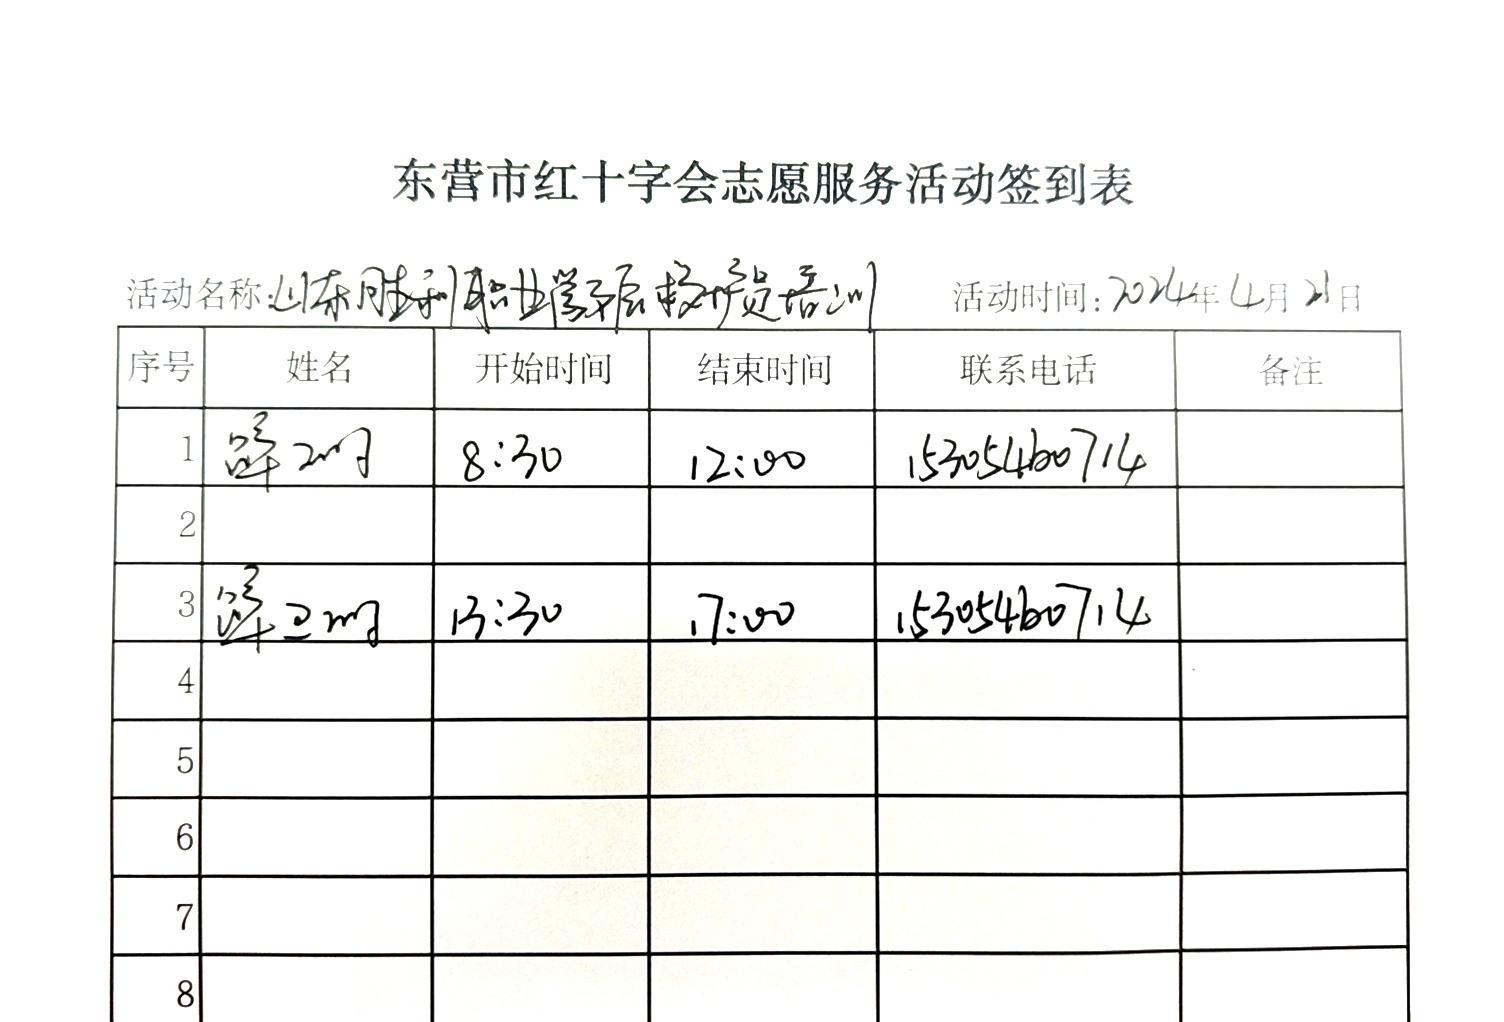 东营市红十字会志愿服务活动签到表
活动名称:山东胜利职业学院救护员培训 活动时间:2024年4月21日
序号 姓名 开始时间 结束时间 联系电话 备注
1 8:30 12:00 15305460714
2
3 13:30 17:00 15305460714
4
5
6
7
8